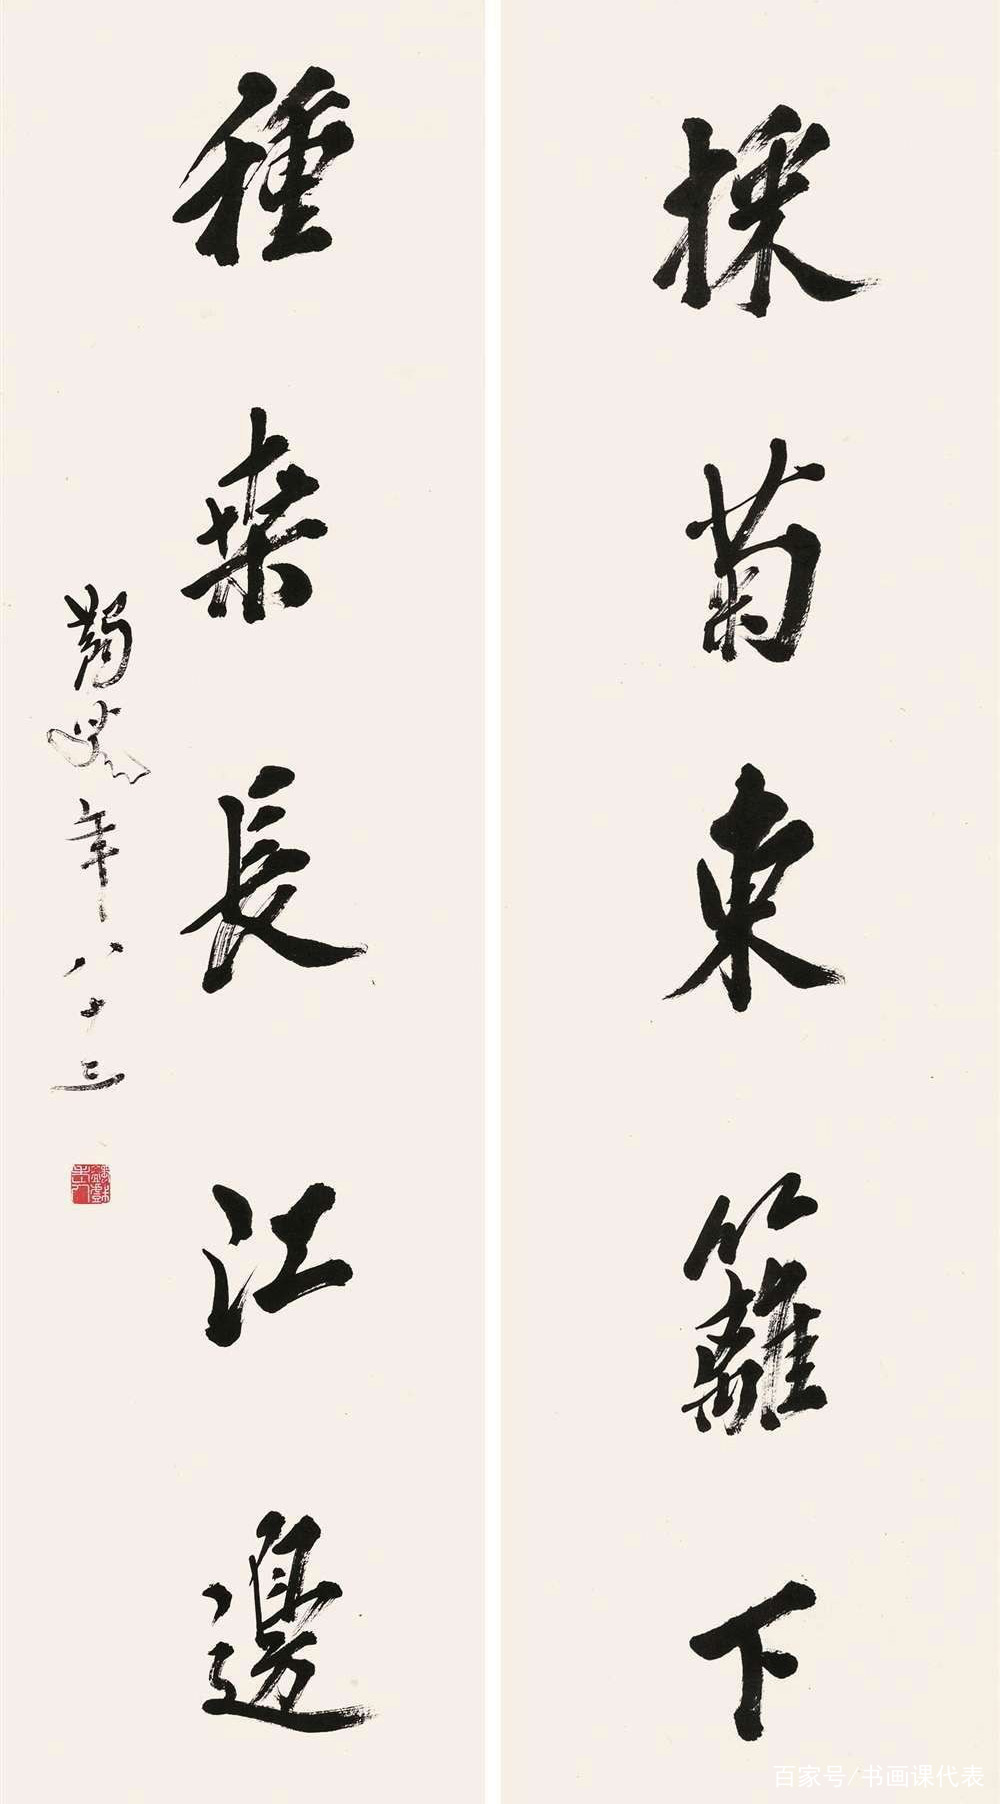 採菊東籬下
種桒長江邊
蠲叟年八十三
百家号/书画课代表